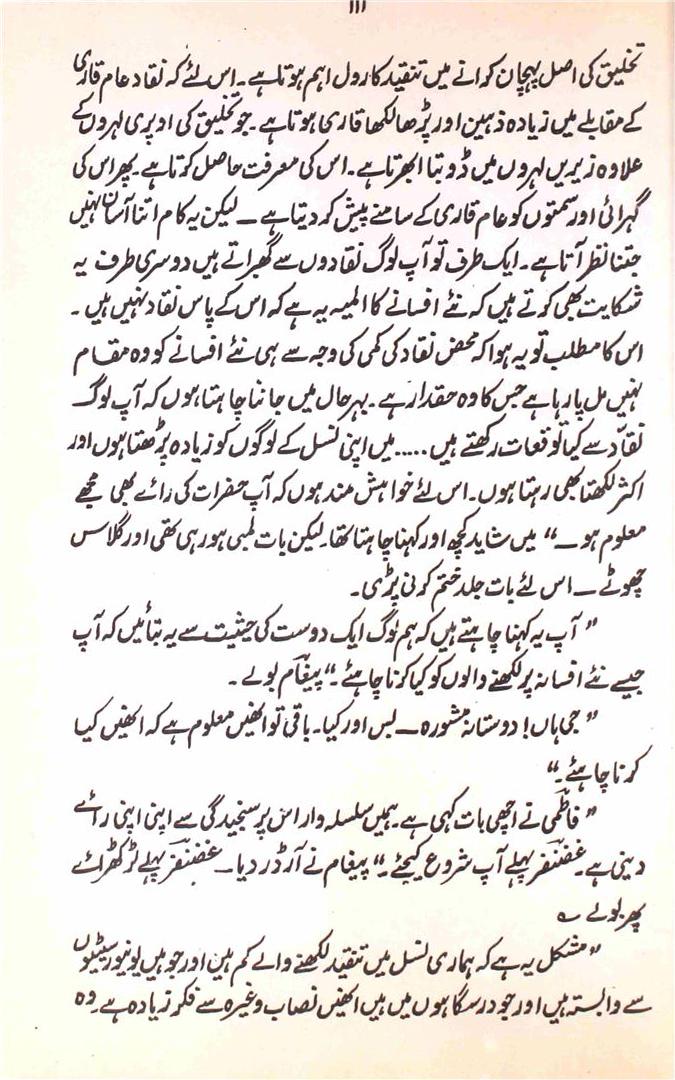 ۱۱۱
تخلیق کی اصل پہچان کرانے میں تنقید کا رول اہم ہوتا ہے۔ اس لئے کہ نقاد عام قاری
کے مقابلے میں زیادہ ذہین اور پڑھا لکھا قاری ہوتا ہے۔ جو تخلیق کی اوپری لہروں کے
علاوہ زیریں لہروں میں ڈوبتا ابھرتا ہے۔ اس کی معرفت حاصل کرتا ہے۔ پھر اس کی
گہرائی اور سمتوں کو عام قاری کے سامنے پیش کر دیتا ہے ــ لیکن یہ کام اتنا آسان نہیں
جتنا نظر آتا ہے۔ ایک طرف تو آپ لوگ نقادوں سے گھبراتے ہیں دوسری طرف یہ
شکایت بھی کرتے ہیں کہ نئے افسانے کا المیہ یہ ہے کہ اس کے پاس نقاد نہیں ہیں ۔
اس کا مطلب تو یہ ہوا کہ محض نقاد کی کمی کی وجہ سے ہی نئے افسانے کو وہ مقام
نہیں مل پا رہا ہے جس کا وہ حقدار ہے۔ بہر حال میں جاننا چاہتا ہوں کہ آپ لوگ
نقاد سے کیا توقعات رکھتے ہیں ..... میں اپنی نسل کے لوگوں کو زیادہ پڑھتا ہوں اور
اکثر لکھتا بھی رہتا ہوں۔ اس لئے خواہش مند ہوں کہ آپ حضرات کی رائے بھی مجھے
معلوم ہو ــ“ میں شاید کچھ اور کہنا چاہتا تھا۔ لیکن بات لمبی ہو رہی تھی اور گلاس
چھوٹے ــ اس لئے بات جلد ختم کرنی پڑی۔
” آپ یہ کہنا چاہتے ہیں کہ ہم لوگ ایک دوست کی حیثیت سے یہ بتائیں کہ آپ
جیسے نئے افسانہ پر لکھنے والوں کو کیا کرنا چاہئے۔“ پیغام بولے ۔
” جی ہاں! دوستانہ مشورہ ــ بس اور کیا۔ باقی تو انھیں معلوم ہے کہ انھیں کیا
کرنا چاہئے۔“
” فاطمی نے اچھی بات کہی ہے۔ ہمیں سلسلہ وار اس پر سنجیدگی سے اپنی اپنی رائے
دینی ہے۔ غضنفر پہلے آپ شروع کیجئے۔“ پیغام نے آرڈر دیا ــ غضنفر پہلے لڑکھڑائے
پھر بولے
” مشکل یہ ہے کہ ہماری نسل میں تنقید لکھنے والے کم ہیں اور جو ہیں یونیورسیٹیوں
سے وابستہ ہیں اور جو درسگاہوں میں ہیں انھیں نصاب وغیرہ سے فکر زیادہ ہے۔ وہ